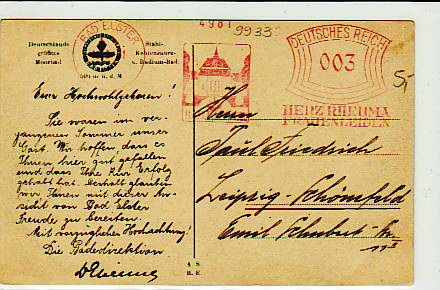 4981
9933
BAD ELSTER
DEUTSCHES REICH
003
Deutschlands
größtes
Moorbad
Stahl-
Kohlensäure-
u. Radium-Bad.
HERZ RHEUMA
FRAUENLEIDEN
5,-
Euer Hochwohlgeboren!
Sie waren im ver-
gangenen Sommer unser
Gast. Wir hoffen dass es
Ihnen hier gut gefallen
und dass Ihre Kur Erfolg
gehabt hat. Deshalb glauben
wir Ihnen mit dieser An
sicht von Bad Elster
Freude zu bereiten.
Mit vorzüglicher Hochachtung!
Die Badedirektion.
Herrn
Paul Friedrich
Leipzig - Schönefeld
Emil Schubert-Str.
A. S.